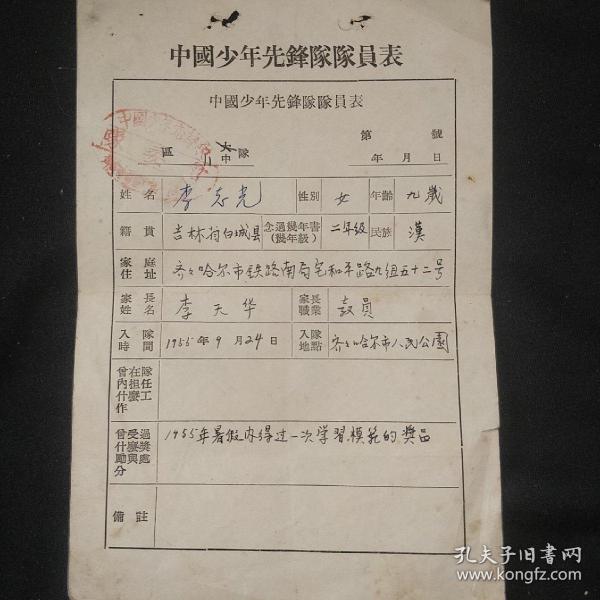 中國少年先鋒隊隊員表
中國少年先鋒隊隊員表
第 號
區 大中隊
年 月 日
姓名 李志光 性別 女 年齡 九歲
籍貫 吉林村白城县 念過幾年書(幾年級) 二年级 民族 漢
家庭住址 齐々哈尔市铁路南局宅和平路九组五十二号
家長姓名 李天华 家長職業 教員
入隊時間 1955年9月24日 入隊地點 齐々哈尔市人民公園
曾在隊內担任什麼工作
曾受過什麼獎勵與處分 1955年暑假内得过一次学習模範的奬品
備註
孔夫子旧書网
www.kongfz.com